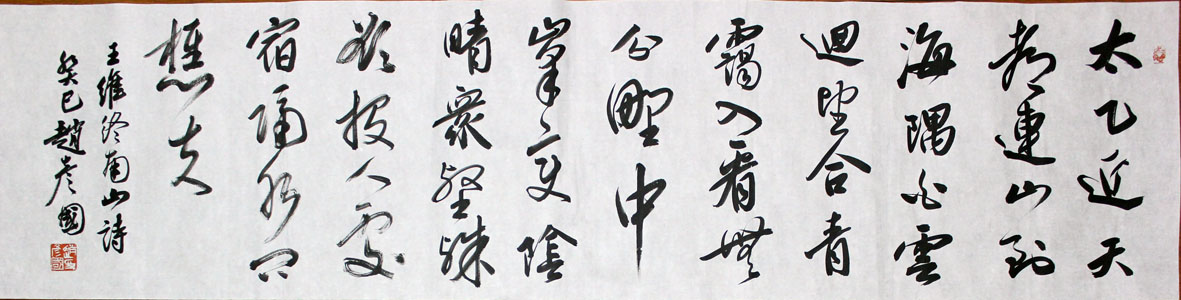 太乙近天
都連山到
海隅白雲
迴望合青
靄入看無
分野中
峯變陰
晴衆壑殊
欲投人處
宿隔水問
樵夫
王維終南山詩
癸巳趙彥國